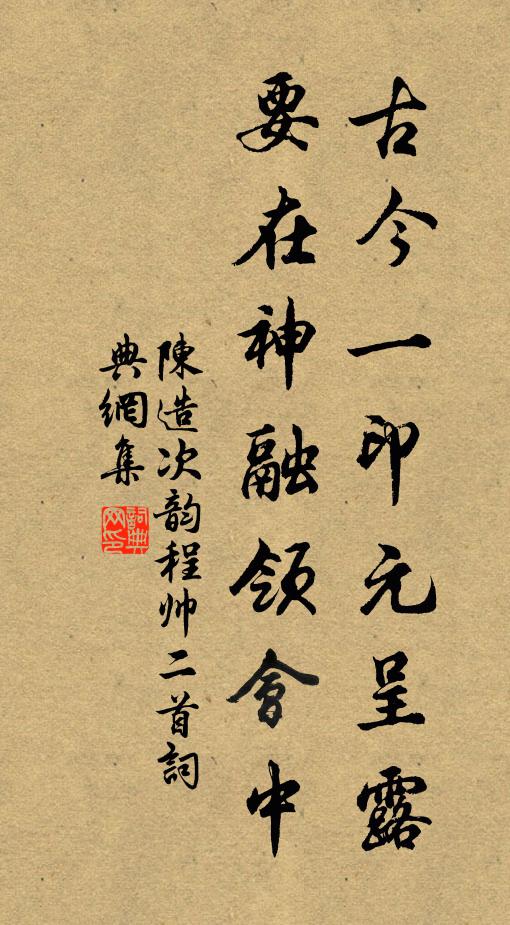 古今一印元呈露
要在神融領會中
陳造次韵程帅二首詞
典網集
詞典
网印